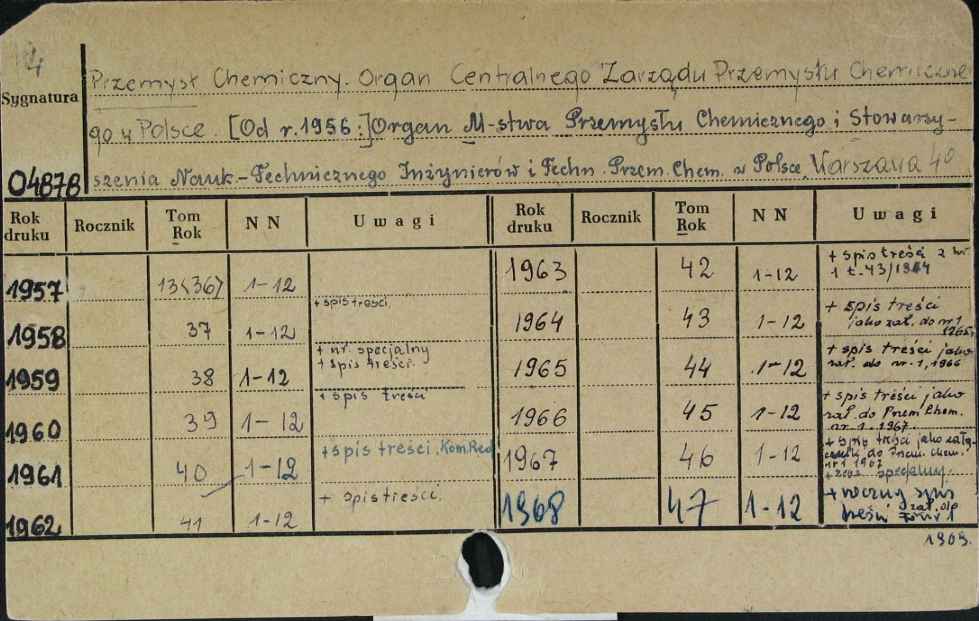 4
Sygnatura
Przemysł Chemiczny. Organ Centralnego Zarządu Przemysłu Chemiczne-
go w Polsce. [Od r. 1956:] Organ M-stwa Przemysłu Chemicznego i Stowarzy-
04878 szenia Nauk.-Technicznego Inżynierów i Techn. Przem. Chem. w Polsce. Warszawa 40
Rok druku Rocznik Tom Rok N N Uwagi Rok druku Rocznik Tom Rok N N Uwagi
1957 13<36> 1-12
1958 37 1-12 + spis treści
1959 38 1-12 + nr. specjalny + spis treści.
1960 39 1-12 + spis treści
1961 40 1-12 + spis treści. Kom. Red
1962 41 1-12 + spis treści.
1963 42 1-12 + spis treści z nr 1 t. 43/1964
1964 43 1-12 + spis treści jako zał. do nr 1 1965.
1965 44 1-12 + spis treści jako zał. do nr. 1, 1966
1966 45 1-12 + spis treści jako zał. do Przem. Chem. nr 1. 1967.
1967 46 1-12 + spis treści jako do Przem. Chem. nr 1 specjalny.
1968 47 1-12 + roczny spis treści zał. do nr 1
1969.